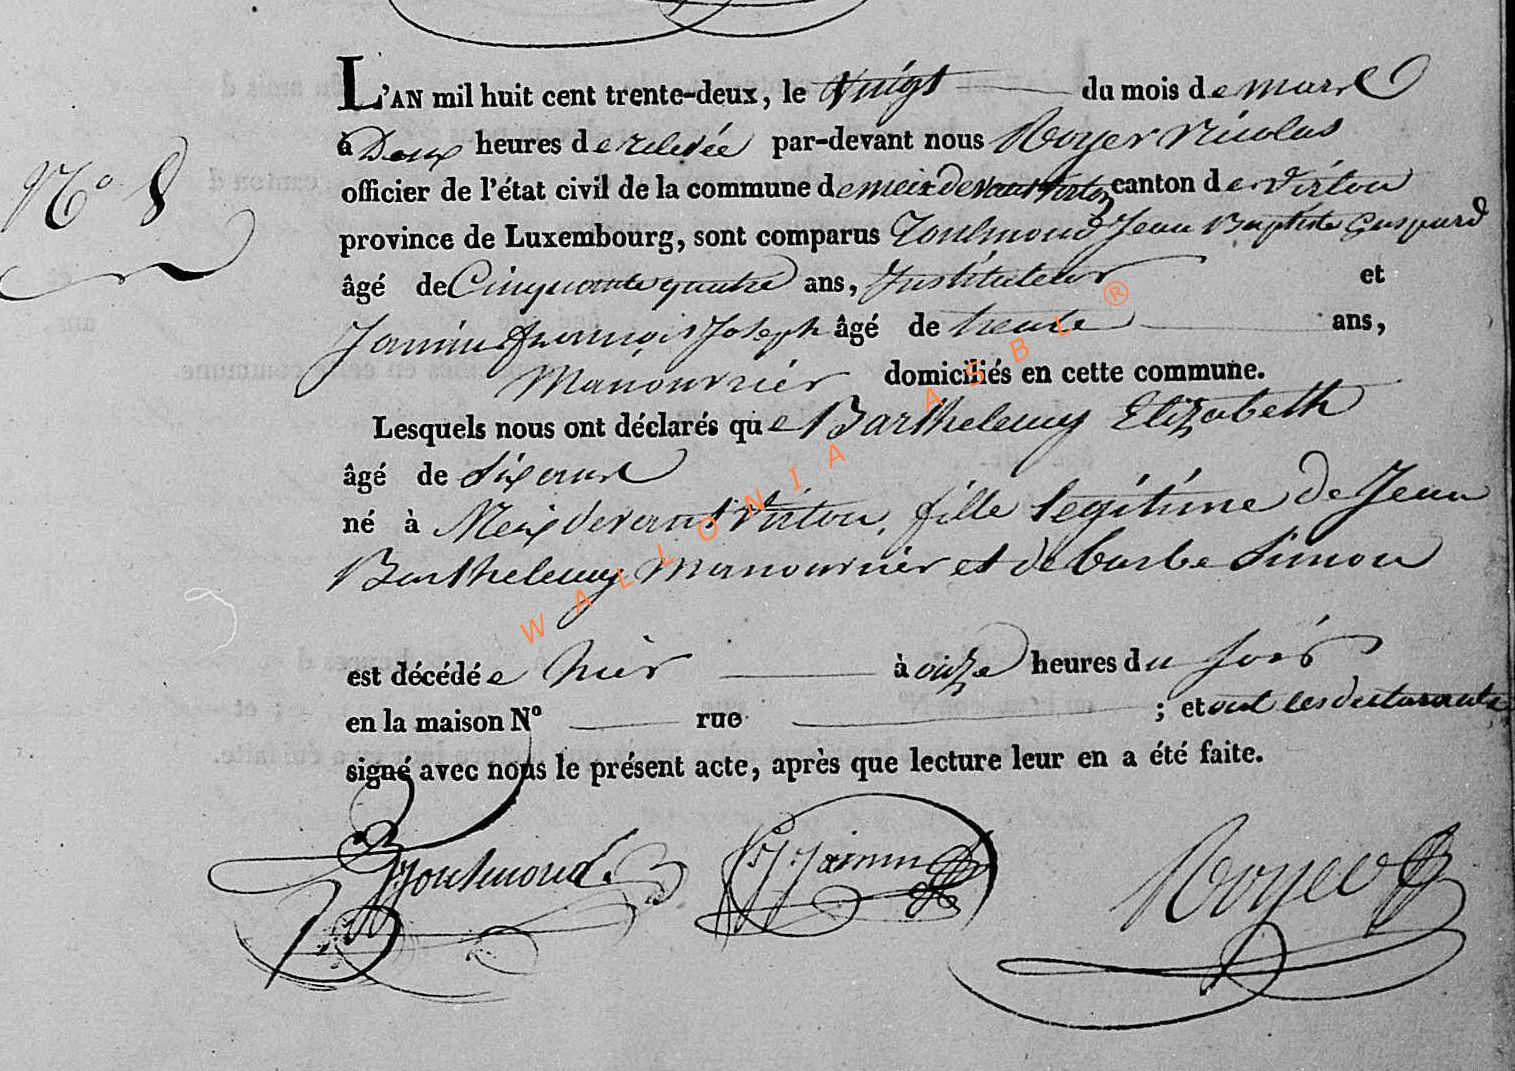 L'AN mil huit cent trente-deux, le Vingt du mois de mars
N° 8
à Deux heures de relevée par-devant nous Royer Nicolas
officier de l'état civil de la commune de meix devant virton canton de virton
province de Luxembourg, sont comparus Toulmond Jean Baptiste Gaspard
âgé de Cinquante quatre ans, Instituteur et
Jamin françois Joseph âgé de trente ans,
Manouvrier domiciliés en cette commune.
Lesquels nous ont déclarés que Barthelemy Elizabeth
âgé de Six ans
né à Meix devant Virton, fille legitime de Jean
Barthelemy manouvrier et de barbe Simon
est décédée hier à onze heures du soir
en la maison N° rue ; et ont les déclarants
signé avec nous le présent acte, après que lecture leur en a été faite.
Toulmond. Jamin Royer
WALLONIA ASBL ®